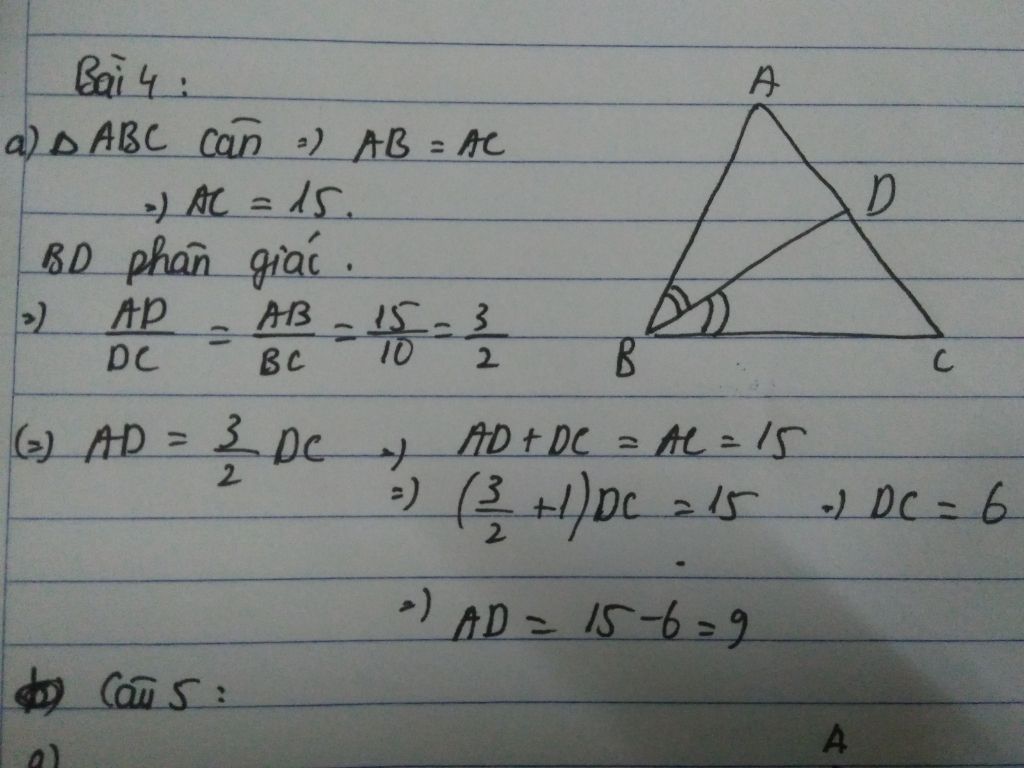 Bài 4 :
a) Δ ABC cân => AB = AC
=> AC = 15.
BD phân giác .
=> AD/DC = AB/BC = 15/10 = 3/2
(=) AD = 3/2 DC => AD + DC = AC = 15
=> (3/2 + 1) DC = 15 => DC = 6
=> AD = 15 - 6 = 9
Câu 5 :
a)
A
D
B
C
A